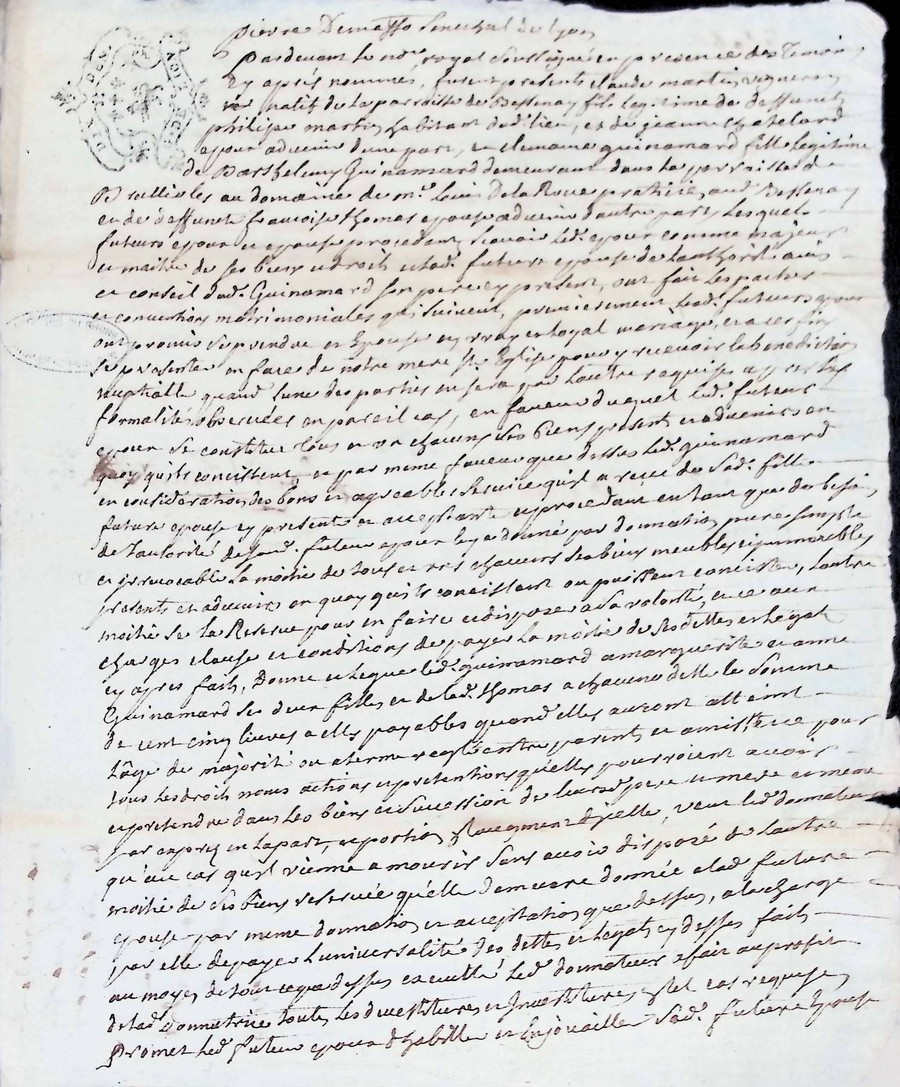 pierre Demasso senechal de lyon
pardevant le nore royal soussigné en presence des temoins
cy aprés nommes, furent presents claude martin vigneron
natif de la parroisse de Bessenay fils legitime de deffunct
philipe martin habitant dud. lieu, et de jeanne chatelard
epoux advenir d'une part, et clemance guinamard fille legitime
de Barthelemy Guinamard demeurant dans la parroisse de
Brullioles au domaine de mre Louis De la Roue praticien aud. Bessenay
et de deffuncte francoise thomas epouse advenir d'autre part, Lesquels
futurs epoux et epouse procedants scavoir led. epoux comme majeur
et maitre de ses biens et droits et lad. future epouse de l'authorité avis
et conseil dud. Guinamard son pere cy present, ont fait les pactes
et conventions matrimoniales qui suivent, premierement lesd. futurs epoux
ont promis se prendre et Epouser en vray et loyal mariage, et a ces fins
se presenter en face de notre mere Ste Eglise pour y recevoir la benediction
nuptialle quand l'une des parties en sera par l'autre requise apres les
formalités observées en pareil cas, en faveur duquel led. futeur
epoux se constitue tous et un chacuns ses biens presents et advenirs en
quoy qu'ils concistent, et par meme faveur que dessus led. guinamard
en consideration des bons et agreables service qu'il a receu de sad. fille
future epouse cy presente et acceptante et procedant en tant que de besoin
de l'autorité de sond. futeur epoux luy a donné par donnation pure simple
et irrevocable la moitié de tous et uns chacuns ses biens meubles et immeubles
presents et advenirs en quoy qu'ils concistent ou puissent concister, l'autre
moitié se la Reserve pour en faire et disposer a sa volonté, et ce aux
charges clause et conditions de payer la moitié de ses dettes et legat
cy apres faits, Donne et legue led. guinamard a marguerite et anne
Guinamard ses deux filles et de lad. thomas a chacune d'elle la somme
de cent cinq livres a elles payables quand elles auront atteint
l'age de majorité ou a terme reglé entre parents et amis, et ce pour
tous les droits noms actions et pretentions qu'elles pourroient avoir
et pretendre dans les biens et succession de leursd. pere et mere et meme
par exprez en la part, et portion d'icelle, veut led. donnateur
qu'au cas qu'il vienne a mourir sans avoir disposé de l'autre
moitié de ses biens reservée qu'elle demeure donnée a lad. future
epouse par meme donnation et acceptation que dessus, a la charge
par elle de payer l'universalité des dettes et legats cy dessus faits
au moyen de tout ce que dessus led. donnateur a fait au profit
de lad. Donnatrice toutes les devestitures et Investitures en tel cas requises
Promet led. futeur epoux d'habiller et Enjouailler sad. future Epouse